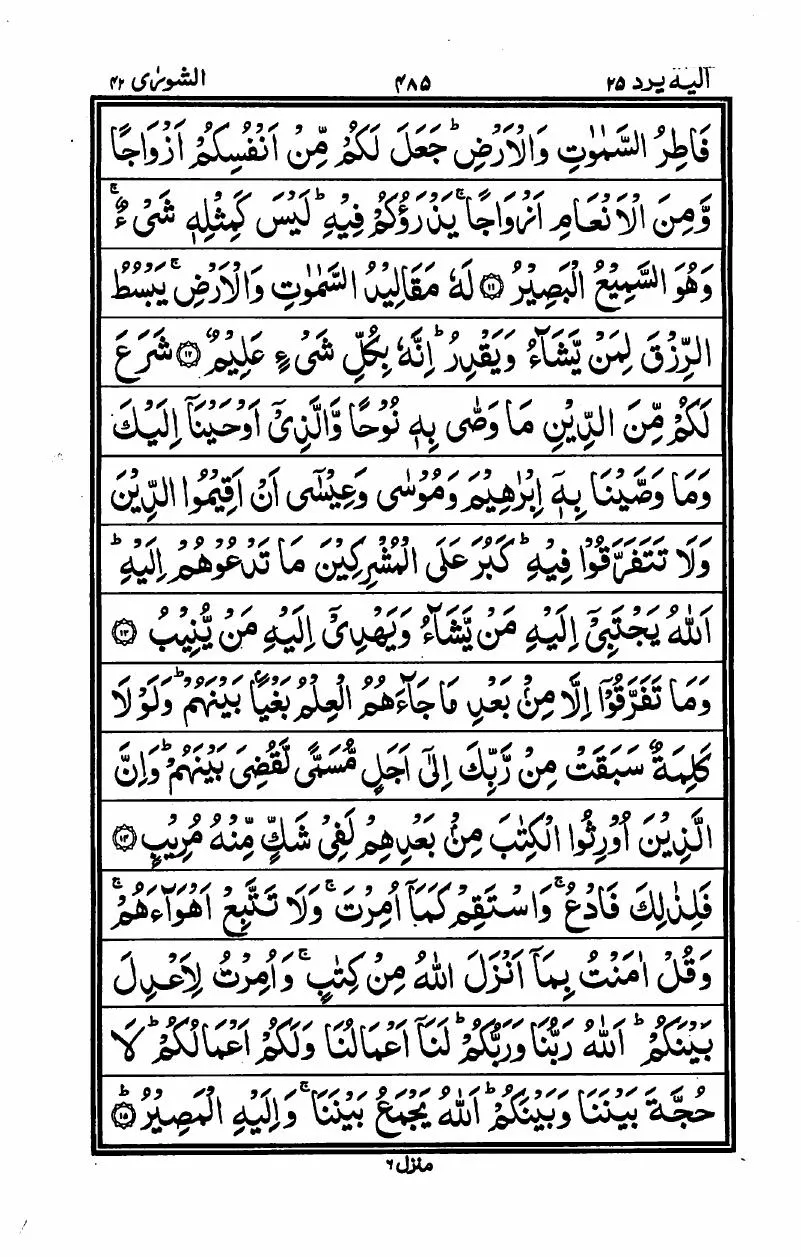 الیہ یرد ۲۵ ۴۸۵ الشورٰی ۴۲
فَاطِرُ السَّمٰوٰتِ وَالْاَرْضِ ؕ جَعَلَ لَكُمْ مِّنْ اَنْفُسِكُمْ اَزْوَاجًا
وَّمِنَ الْاَنْعَامِ اَزْوَاجًا ۚ يَذْرَؤُكُمْ فِيْهِ ؕ لَيْسَ كَمِثْلِهٖ شَیْءٌ ۚ
وَهُوَ السَّمِيْعُ الْبَصِيْرُ ﴿۱۱﴾ لَهٗ مَقَالِيْدُ السَّمٰوٰتِ وَالْاَرْضِ ۚ يَبْسُطُ
الرِّزْقَ لِمَنْ يَّشَآءُ وَيَقْدِرُ ؕ اِنَّهٗ بِكُلِّ شَیْءٍ عَلِيْمٌ ﴿۱۲﴾ شَرَعَ
لَكُمْ مِّنَ الدِّيْنِ مَا وَصّٰی بِهٖ نُوْحًا وَّالَّذِیْۤ اَوْحَيْنَاۤ اِلَيْكَ
وَمَا وَصَّيْنَا بِهٖۤ اِبْرٰهِيْمَ وَمُوْسٰی وَعِيْسٰۤی اَنْ اَقِيْمُوا الدِّيْنَ
وَلَا تَتَفَرَّقُوْا فِيْهِ ؕ كَبُرَ عَلَی الْمُشْرِكِيْنَ مَا تَدْعُوْهُمْ اِلَيْهِ ؕ
اَللّٰهُ يَجْتَبِیْۤ اِلَيْهِ مَنْ يَّشَآءُ وَيَهْدِیْۤ اِلَيْهِ مَنْ يُّنِيْبُ ﴿۱۳﴾
وَمَا تَفَرَّقُوْۤا اِلَّا مِنْۢ بَعْدِ مَا جَآءَهُمُ الْعِلْمُ بَغْيًۢا بَيْنَهُمْ ؕ وَلَوْلَا
كَلِمَةٌ سَبَقَتْ مِنْ رَّبِّكَ اِلٰۤی اَجَلٍ مُّسَمًّی لَّقُضِیَ بَيْنَهُمْ ؕ وَاِنَّ
الَّذِيْنَ اُوْرِثُوا الْكِتٰبَ مِنْۢ بَعْدِهِمْ لَفِیْ شَكٍّ مِّنْهُ مُرِيْبٍ ﴿۱۴﴾
فَلِذٰلِكَ فَادْعُ ۚ وَاسْتَقِمْ كَمَاۤ اُمِرْتَ ۚ وَلَا تَتَّبِعْ اَهْوَآءَهُمْ ۚ
وَقُلْ اٰمَنْتُ بِمَاۤ اَنْزَلَ اللّٰهُ مِنْ كِتٰبٍ ۚ وَاُمِرْتُ لِاَعْدِلَ
بَيْنَكُمْ ؕ اَللّٰهُ رَبُّنَا وَرَبُّكُمْ ؕ لَنَاۤ اَعْمَالُنَا وَلَكُمْ اَعْمَالُكُمْ ؕ لَا
حُجَّةَ بَيْنَنَا وَبَيْنَكُمْ ؕ اَللّٰهُ يَجْمَعُ بَيْنَنَا ۚ وَاِلَيْهِ الْمَصِيْرُ ؕ﴿۱۵﴾
منزل ۶